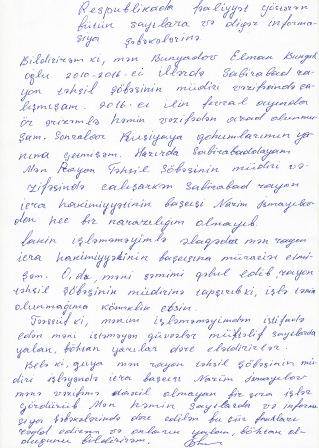 Respublikada fəaliyyət göstərən
bütün saytlara və digər informa-
siya şəbəkələrinə
Bildirirəm ki, mən Bunyadov Elman
oğlu 2010-2016-cı illərdə Sabirabad ra-
yon təhsil şöbəsinin müdiri vəzifəsində ça-
lışmışam. 2016-cı ilin fevral ayında
öz ərizəmlə həmin vəzifədən azad olunmu-
şam. Sonralar Rusiyaya qohumlarımın ya-
nına getmişəm. Hazırda Sabirabaddayam.
Mən Rayon Təhsil Şöbəsinin müdiri və-
zifəsində çalışarkən Sabirabad rayon
icra hakimiyyətinin başçısı Nazim İsmayılov-
dan heç bir narazılığım olmayıb.
Lakin işləməməyimlə əlaqədar mən rayon
icra hakimiyyətinin başçısına müraciət etmi-
şəm. O, da, məni səmimi qəbul edib, rayon
təhsil şöbəsinin müdirinə tapşırıb ki, işlə təmin
olunmağıma köməklik etsin.
Təəssüf ki, mənim işləməməyimdən istifadə
edən məni istəməyən qüvvələr müxtəlif saytlarda
yalan, böhtan yazılar dərc etdirirlər.
Belə ki, guya mən rayon təhsil şöbəsinin mü-
diri işləyəndə icra başçısı Nazim İsmayılov
mənə vəzifəmə daxil olmayan bir sıra işlər
gördürüb. Mən həmin saytlarda və informa-
siya şəbəkələrində dərc edilən bu cür faktları
təkzib edirəm və onların yalan, böhtan ol-
duğunu bildirirəm.